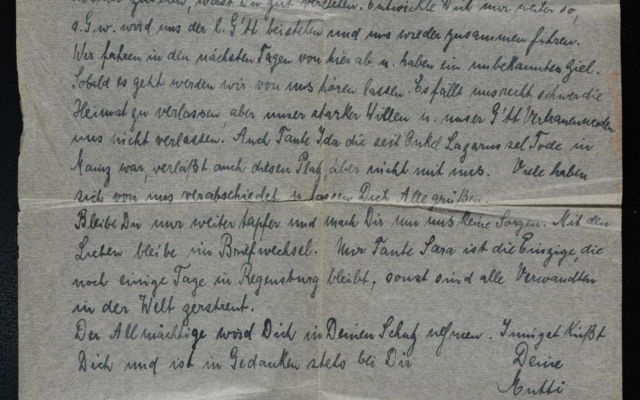 wast Du gut verstehen. Entwickle Dich nur weiter so,
s.G.w. wird uns der l. G'tt beistehen und uns wieder zusammen führen.
Wir fahren in den nächsten Tagen von hier ab u. haben ein unbekanntes Ziel.
Sobald es geht werden wir von uns hören lassen. Es fällt uns recht schwer die
Heimat zu verlassen aber unser starker Willen u. unser G'tt Vertrauen werden
uns nicht verlassen. Auch Tante Ida die seit Onkel Lazarus sel. Tode in
Mainz war, verläßt auch diesen Platz, aber nicht mit uns. Viele haben
sich von uns verabschiedet u. lassen Dich Alle grüßen.
Bleibe Du nur weiter tapfer und mach Dir um uns keine Sorgen. Mit den
Lieben bleibe im Briefwechsel. Nur Tante Sara ist die Einzige, die
noch einige Tage in Regensburg bleibt, sonst sind alle Verwandten
in der Welt zerstreut.
Der Allmächtige wird Dich in Deinen Schutz nehmen. Innigst küßt
Dich und ist in Gedanken stets bei Dir
Deine
Mutti